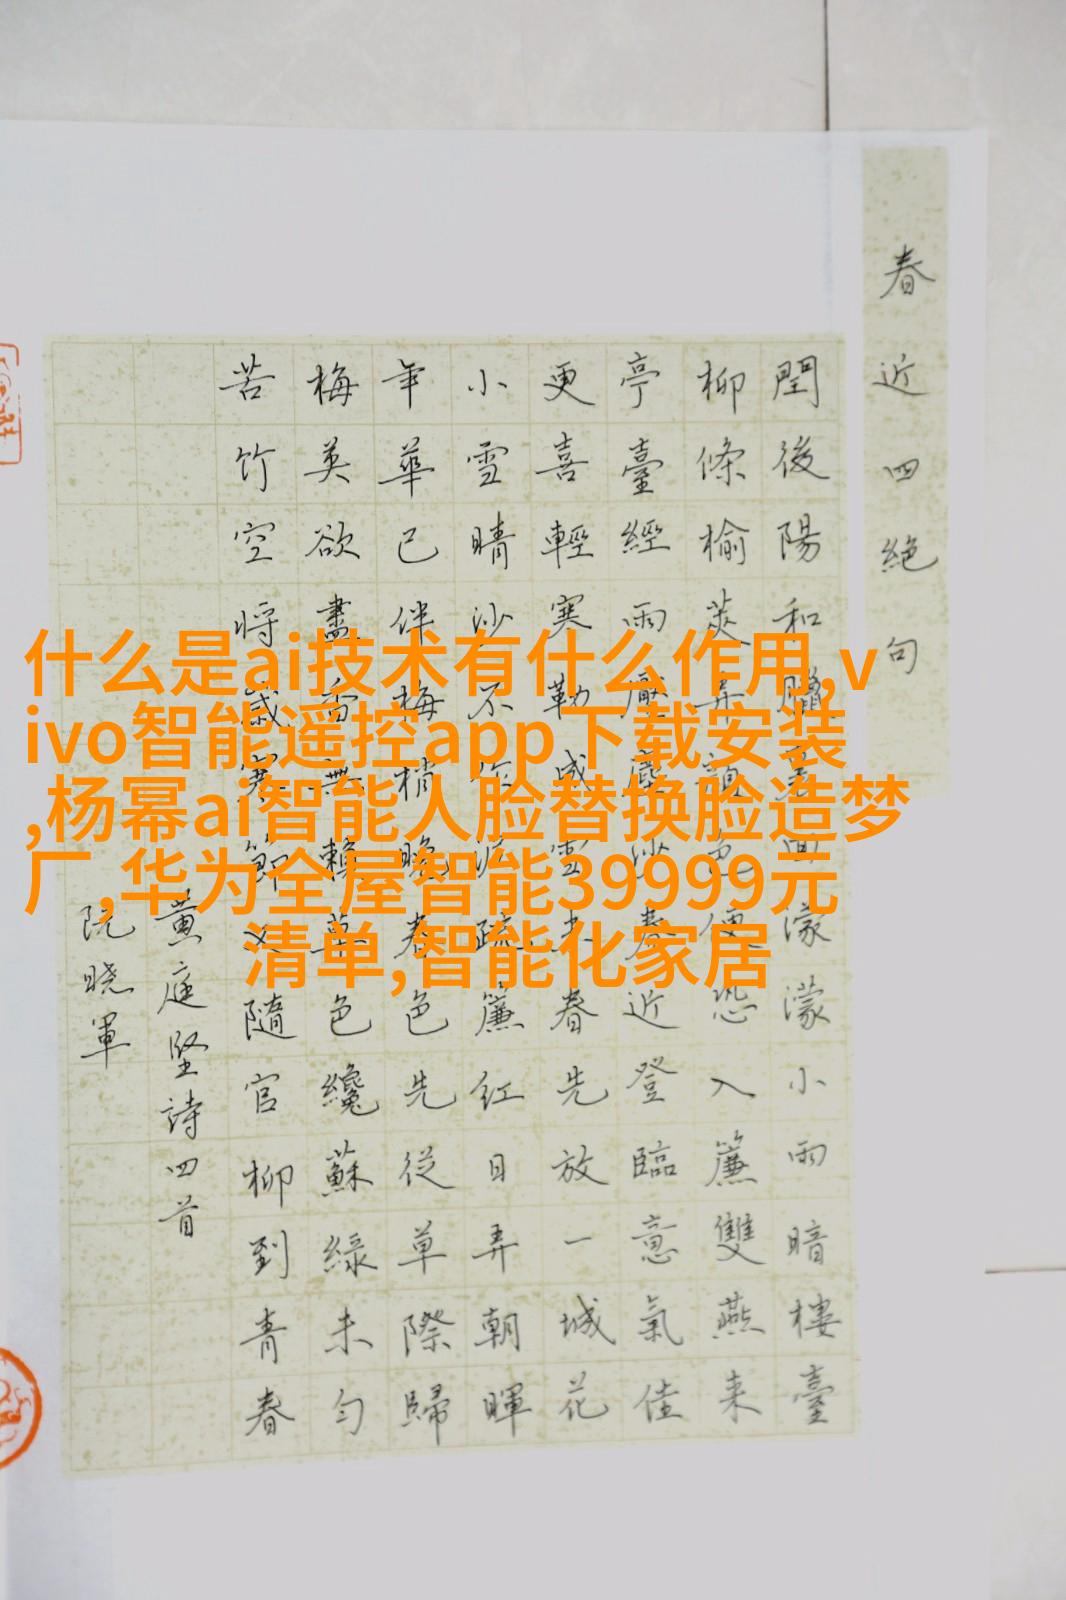 春近四絕句
閏後陽和臘裏回濛濛小雨暗樓臺
柳條榆莢弄顏色便恐入簾雙燕來
亭臺經雨壓塵沙春近登臨意氣佳
更喜輕寒勒成雪未春先放一城花
小雪晴沙不作泥疏簾紅日弄朝暉
年華已伴梅梢晚春色先從草際歸
梅英欲盡香無賴草色纔蘇綠未勻
苦竹空將歲寒節又隨官柳到青春
黄庭坚詩四首
阮晓軍
什么是ai技术有什么作用,v
ivo智能遥控app下载安装
,杨幂ai智能人脸替换脸造梦
厂,华为全屋智能39999元
清单,智能化家居